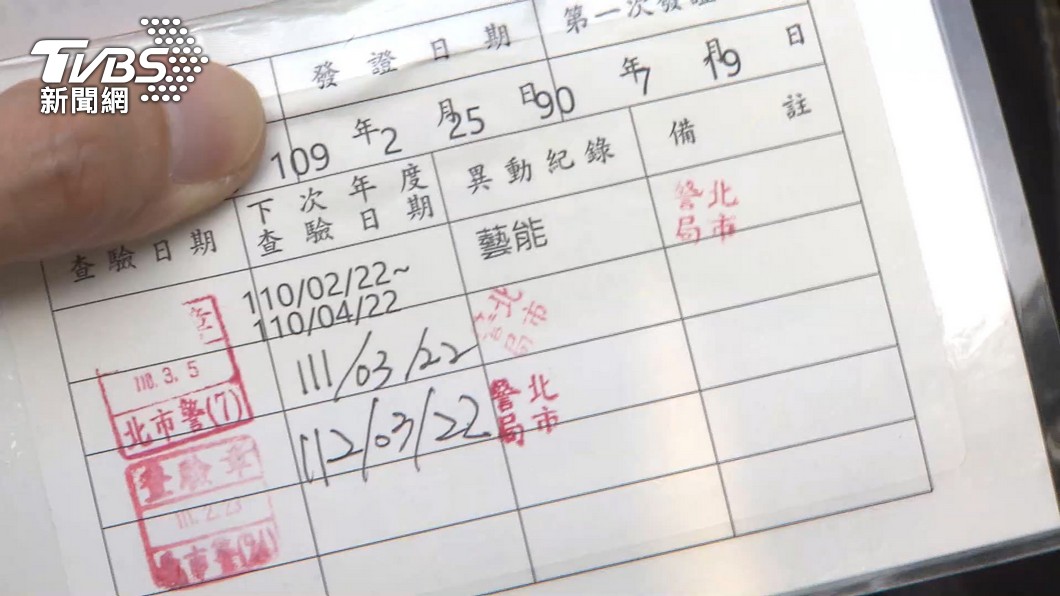 TVBS
新聞網
發證日期
第一次發證
109年2月25日
90年7月19日
查驗日期
下次年度
查驗日期
異動紀錄
備註
110/02/22~
110/04/22
藝能
北市
警局
110.3.5
北市警(7)
111/03/22
北市
112/03/22
北市
警局
查驗章
111.2.23